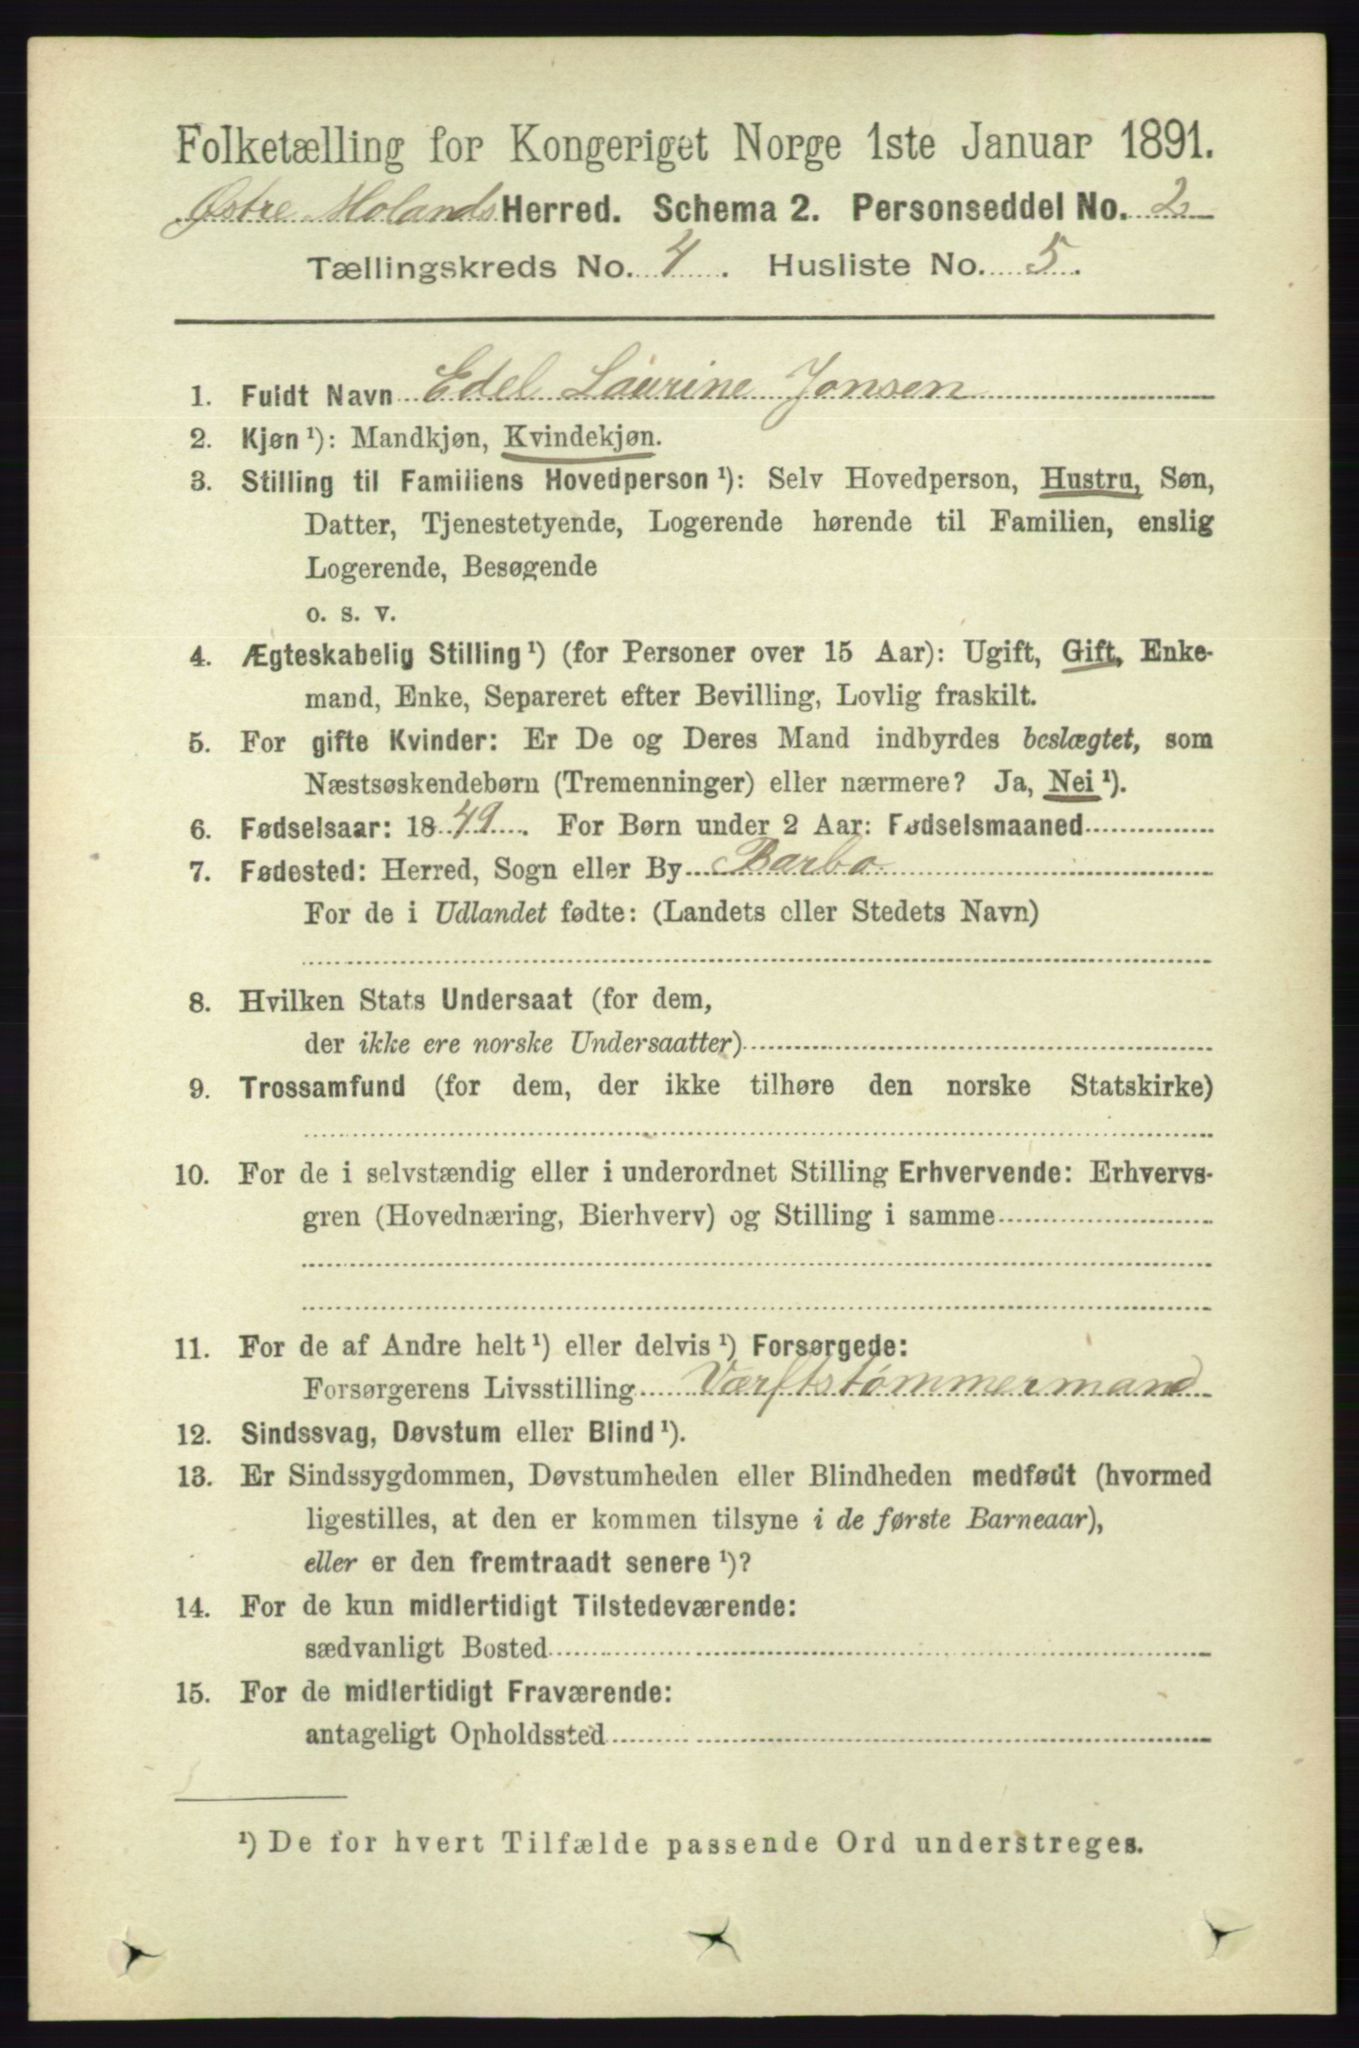 Folketælling for Kongeriget Norge 1ste Januar 1891.
Østre Molands Herred. Schema 2. Personseddel No. 2
Tællingskreds No. 4. Husliste No. 5.
1. Fuldt Navn Edel Laurine Jonsen
2. Kjøn ¹): Mandkjøn, Kvindekjøn.
3. Stilling til Familiens Hovedperson ¹): Selv Hovedperson, Hustru, Søn,
Datter, Tjenestetyende, Logerende hørende til Familien, enslig
Logerende, Besøgende
o. s. v.
4. Ægteskabelig Stilling ¹) (for Personer over 15 Aar): Ugift, Gift, Enke-
mand, Enke, Separeret efter Bevilling, Lovlig fraskilt.
5. For gifte Kvinder: Er De og Deres Mand indbyrdes beslægtet, som
Næstsøskendebørn (Tremenninger) eller nærmere? Ja, Nei ¹).
6. Fødselsaar: 1849. For Børn under 2 Aar: Fødselsmaaned
7. Fødested: Herred, Sogn eller By Barbo
For de i Udlandet fødte: (Landets eller Stedets Navn)
8. Hvilken Stats Undersaat (for dem,
der ikke ere norske Undersaatter)
9. Trossamfund (for dem, der ikke tilhøre den norske Statskirke)
10. For de i selvstændig eller i underordnet Stilling Erhvervende: Erhvervs-
gren (Hovednæring, Bierhverv) og Stilling i samme
11. For de af Andre helt ¹) eller delvis ¹) Forsørgede:
Forsørgerens Livsstilling Værftstømmermand
12. Sindssvag, Døvstum eller Blind ¹).
13. Er Sindssygdommen, Døvstumheden eller Blindheden medfødt (hvormed
ligestilles, at den er kommen tilsyne i de første Barneaar),
eller er den fremtraadt senere ¹)?
14. For de kun midlertidigt Tilstedeværende:
sædvanligt Bosted
15. For de midlertidigt Fraværende:
antageligt Opholdssted
¹) De for hvert Tilfælde passende Ord understreges.